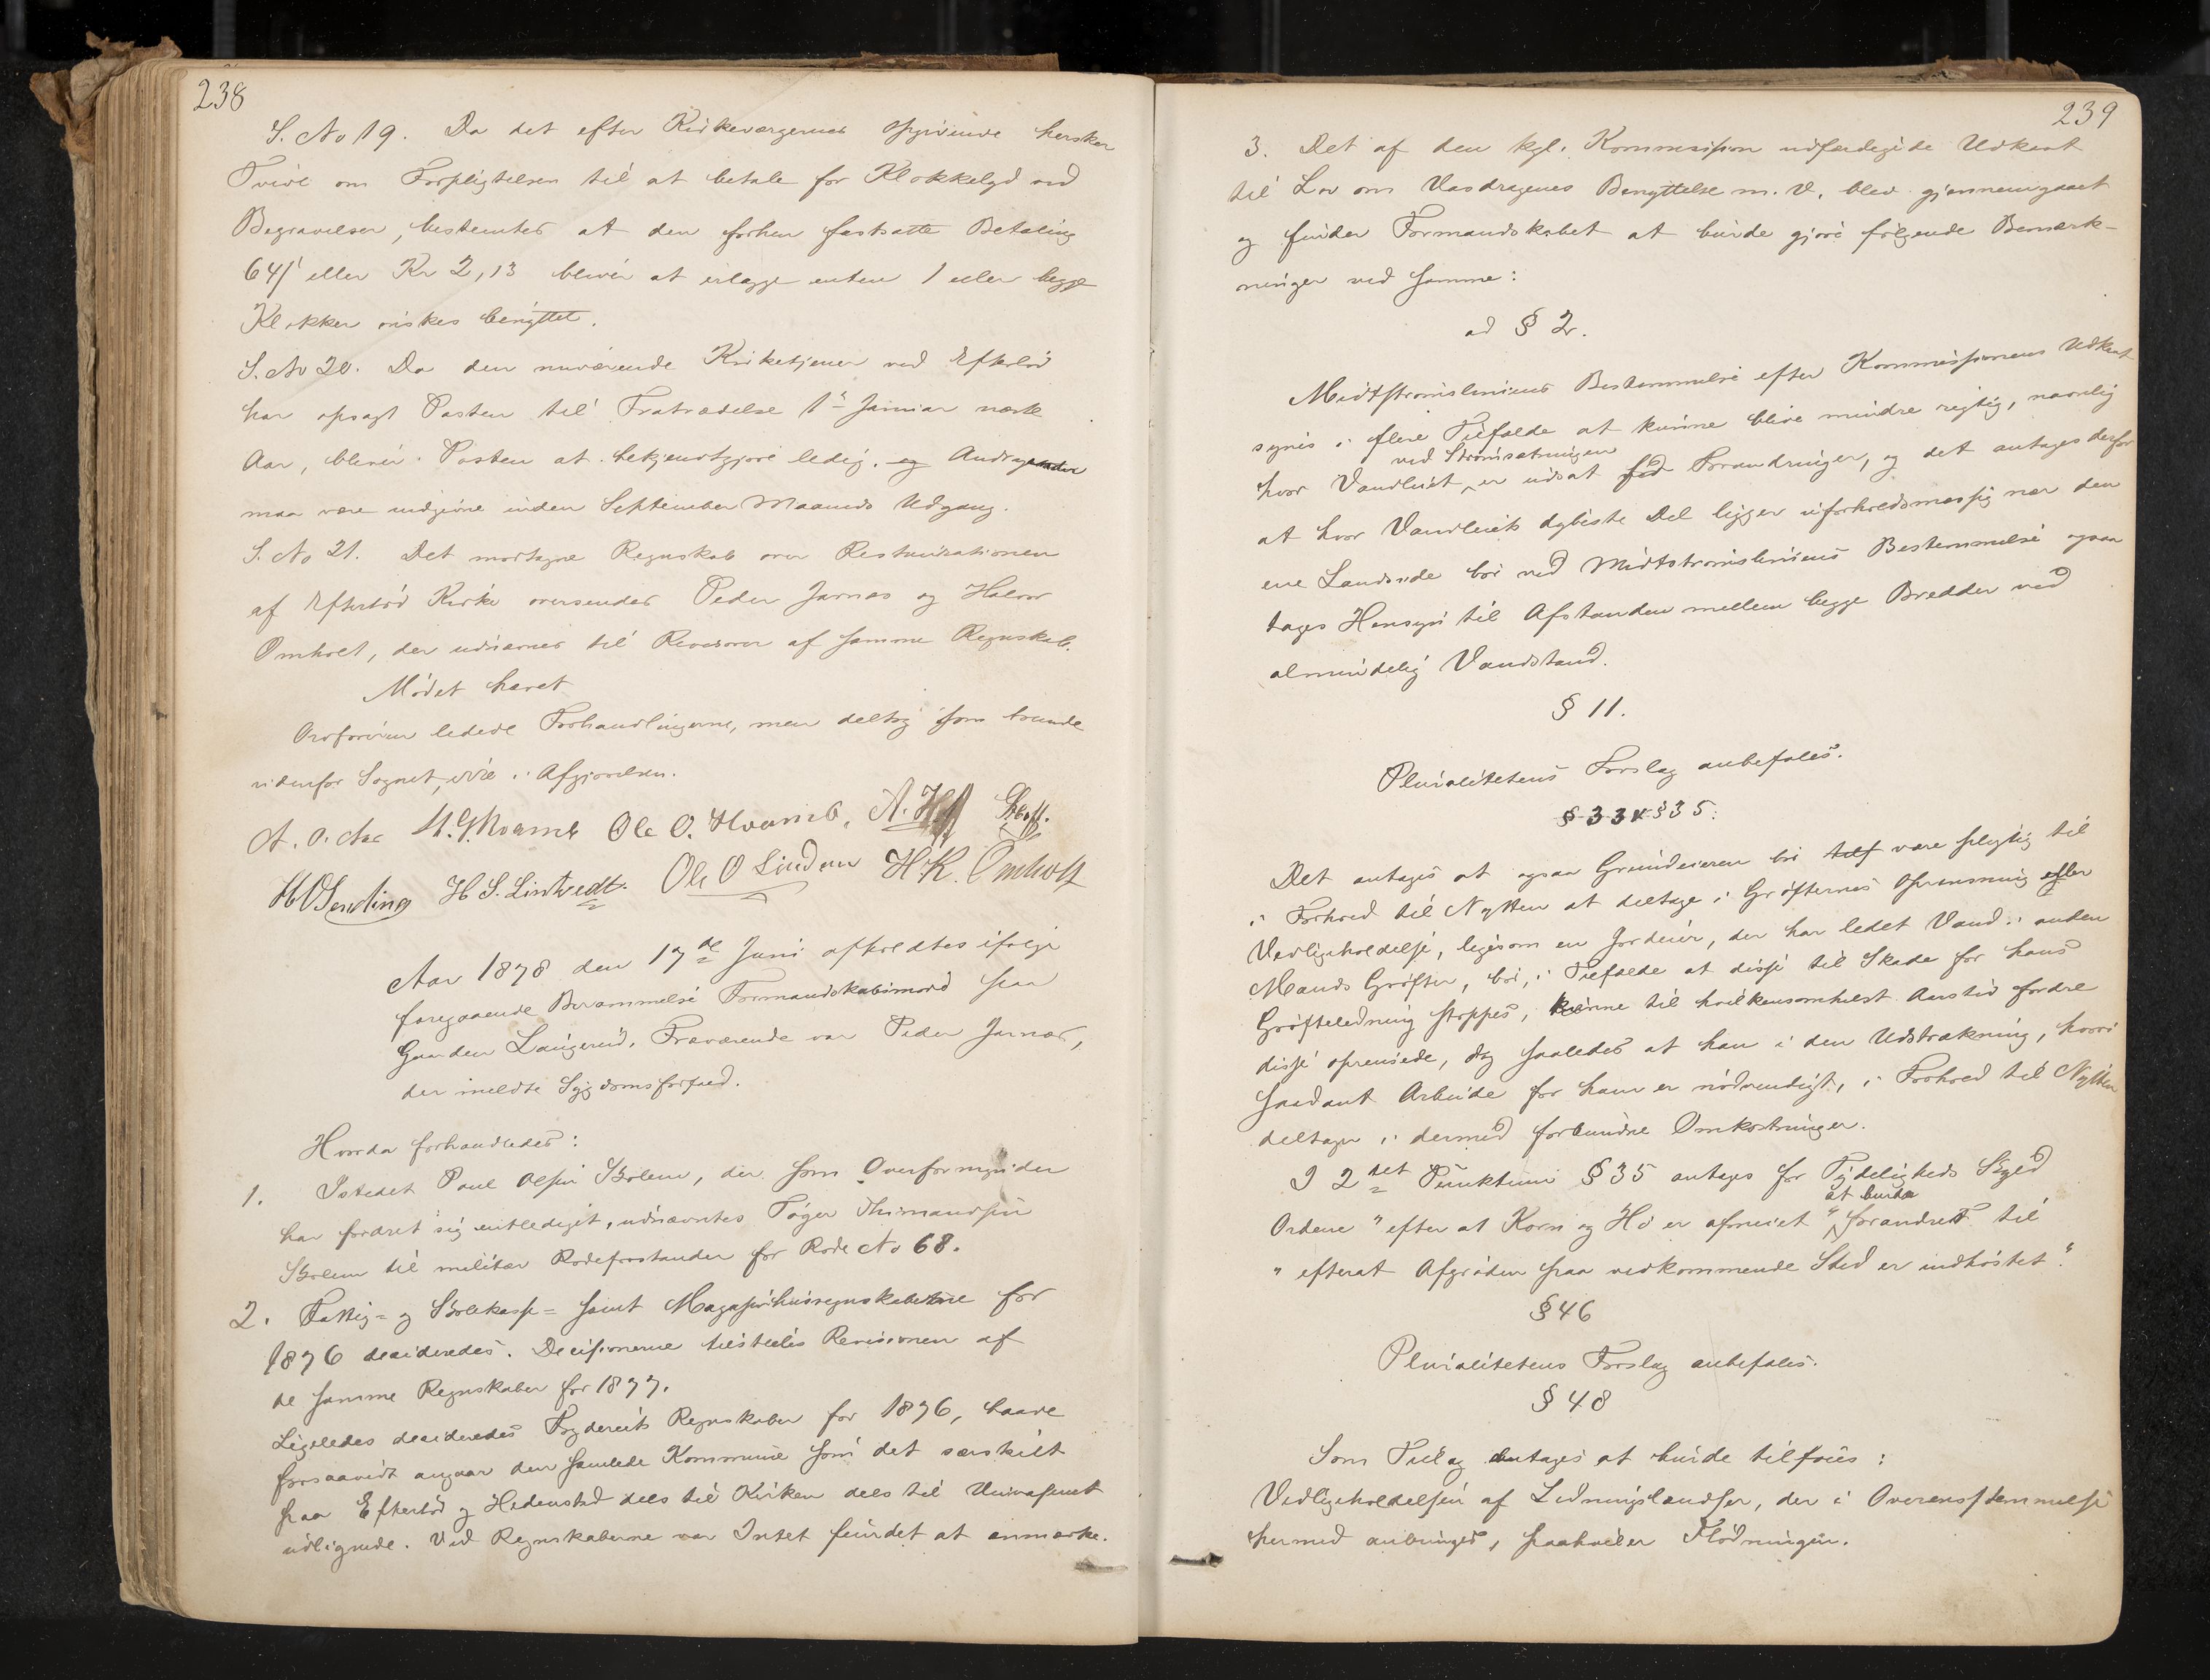 238
S. No 19. Da det efter Kirkeværgernes Opgivende hersker
Tvivl om Forpligtelsen til at betale for Klokkelyd ved
Begravelser, bestemtes at den forhen fastsatte Betaling
64 ß eller Kr 2,13 bliver at erlægge enten 1 eller begge
Klokker ønskes benyttet.
S. No 20. Da den nuværende Kirketjener ved Efteløt
har opsagt Posten til Fratrædelse 1ste Januar næste
Aar, bliver Posten at bekjendtgjøre ledig, og Andragender
maa være indgivne inden September Maaneds Udgang.
S. No 21. Det modtagne Regnskab over Restaurationen
af Efteløt Kirke oversendes Peder Jarnæs og Halvor
Omholt, der udnævnes til Revisorer af samme Regnskab.
Mødet hævet
Ordføreren ledede Forhandlingerne, men deltog som boende
udenfor Sognet, ikke i Afgjørelsen.
A. O. Aas Ole O. Hvamb, A. Hoff
H. S. Lintvedt. Ole O Linderu H. K. Omholt
Aar 1878 den 17de Juni afholdtes ifølge
foregaaende Berammelse Formandskabsmøde paa
Gaarden Laugerud. Fraværende var Peder Jarnæs,
der meldte Sygdomsforfald.
Hvorda forhandledes:
1. Istedet Paul Olsen Skolem, der som Overformynder
har fordret sig entlediget, udnævntes Tøger Thimandsen
Skolem til militær Rodeforstander for Rode No 68.
2. Fattig- og Skolekasse- samt Magasinhusregnskaberne for
1876 decideredes. Decisionerne tilstilles Revisionen af
de samme Regnskaber for 1877.
Ligeledes decideredes Fogderiets Regnskaber for 1876, baade
forsaavidt angaar den samlede Kommune som det særskilt
paa Efteløt og Hedenstad dels til Kirken dels til Universitet
udlignede. Ved Regnskaberne var Intet fundet at anmærke.
239
3. Det af den kgl. Kommission udfærdigede Udkast
til Lov om Vasdragenes Benyttelse m. V. blev gjennemgaaet
og finder Formandskabet at burde gjøre følgende Bemærk-
ninger ved samme:
ad § 2.
Midtstrømsliniens Bestemmelse efter Kommissionens Udkast
synes i flere Tilfælde at kunne blive mindre rigtig, navnlig
hvor Vandleiet ved Strømsætningen er udsat for Forandringer, og det antages derfor
at hvor Vandleiets dybeste Del ligger uforholdsmæssig nær den
ene Landside bør ved Midtstrømsliniens Bestemmelse ogsaa
tages Hensyn til Afstanden mellem begge Bredder ved
almindelig Vandstand.
§ 11.
Pluralitetens Forslag anbefales.
§ 33 & § 35:
Det antages at ogsaa Grundeieren bør være pligtig til
i Forhold til Nytten at deltage i Grøfternes Oprensning eller
Vedligeholdelse, ligesom en Jordeier, der har ledet Vand i anden
Mands Grøfter, bør, i Tilfælde at disse til Skade for hans
Grøfteledning stoppes, kunne til hvilkensomhelst Aarstid fordre
disse oprensede, dog saaledes at han i den Udstrækning, hvori
saadant Arbeide for ham er nødvendigt, i Forhold til Nytten
deltager i dermed forbundne Omkostninger.
I 2det Punktum § 35 antages for Tydeligheds Skyld
Ordene "efter at Korn og Hø er afmeiet" at burde forandres til
"efterat Afgrøden paa vedkommende Sted er indhøstet".
§ 46
Pluralitetens Forslag anbefales.
§ 48
Som Tillæg antages at burde tilføies:
Vedligeholdelsen af Ledningslandser, der i Overensstemmelse
hermed anbringes, paahviler Flødningen.